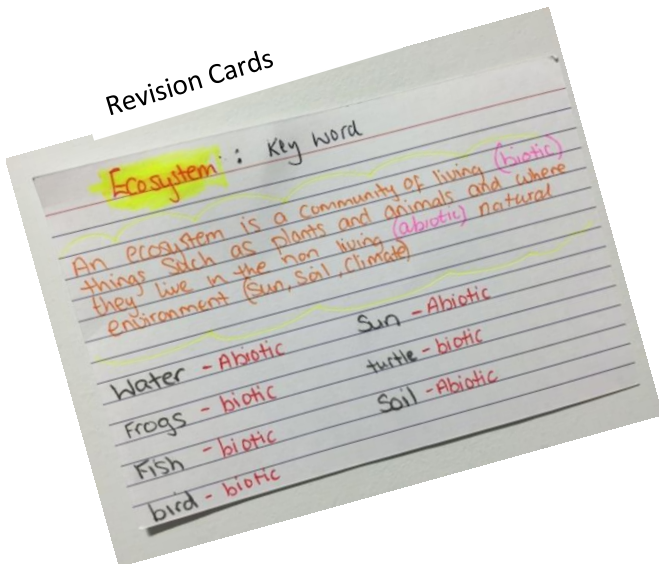 Revision Cards
Ecosystem : Key word
An ecosystem is a community of living (biotic)
things such as plants and animals and where
they live in the non living (abiotic) natural
environment (Sun, Soil, Climate)
Water - Abiotic
Frogs - biotic
Fish - biotic
bird - biotic
Sun - Abiotic
turtle - biotic
Soil - Abiotic